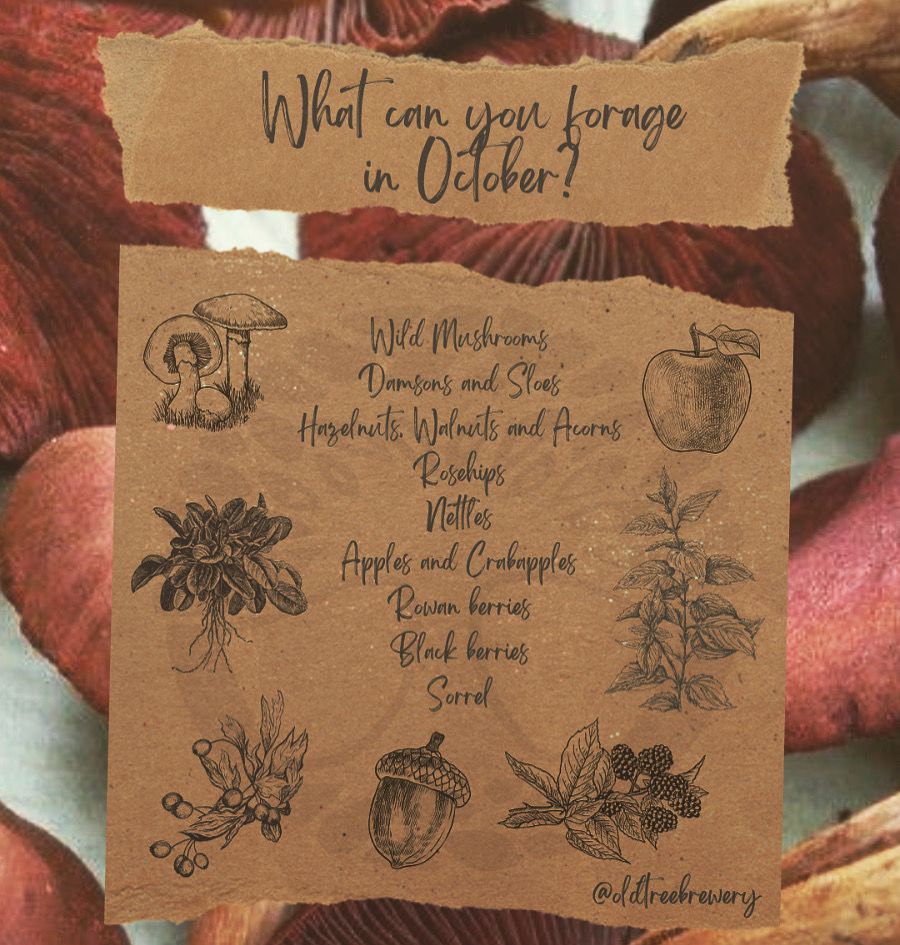 What can you forage
in October?
Wild Mushrooms
Damsons and Sloes
Hazelnuts, Walnuts and Acorns
Rosehips
Nettles
Apples and Crabapples
Rowan berries
Black berries
Sorrel
@oldtreebrewery